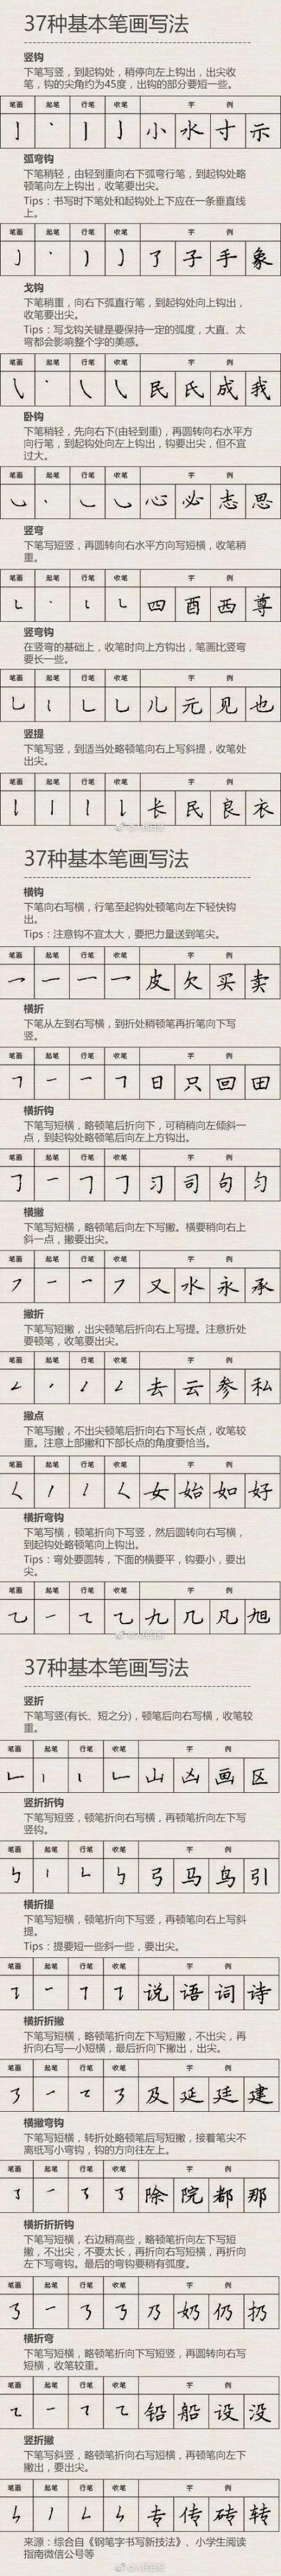 37种基本笔画写法
竖钩
下笔写竖，到起钩处，稍停向左上钩出，出尖收
笔，钩的尖角约为45度，出钩的部分要短一些。
笔画 起笔 行笔 收笔 字 例
亅 小 水 寸 示
弧弯钩
下笔稍轻，由轻到重向右下弧弯行笔，到起钩处略
顿笔向左上钩出，收笔要出尖。
Tips：书写时下笔处和起钩处上下应在一条垂直线
上。
笔画 起笔 行笔 收笔 字 例
了 子 手 象
戈钩
下笔稍重，向右下弧直行笔，到起钩处向上钩出，
收笔要出尖。
Tips：写戈钩关键是要保持一定的弧度，大直、太
弯都会影响整个字的美感。
笔画 起笔 行笔 收笔 字 例
民 氏 成 我
卧钩
下笔稍轻，先向右下(由轻到重)，再圆转向右水平方
向行笔，到起钩处向左上钩出，钩要出尖，但不宜
过大。
笔画 起笔 行笔 收笔 字 例
心 必 志 思
竖弯
下笔写短竖，再圆转向右水平方向写短横，收笔稍
重。
笔画 起笔 行笔 收笔 字 例
四 酉 西 尊
竖弯钩
在竖弯的基础上，收笔时向上方钩出，笔画比竖弯
要长一些。
笔画 起笔 行笔 收笔 字 例
儿 元 见 也
竖提
下笔写竖，到适当处略顿笔向右上写斜提，收笔处
出尖。
笔画 起笔 行笔 收笔 字 例
长 民 良 衣
37种基本笔画写法
横钩
下笔向右写横，行笔至起钩处顿笔向左下轻快钩
出。
Tips：注意钩不宜太大，要把力量送到笔尖。
笔画 起笔 行笔 收笔 字 例
皮 欠 买 卖
横折
下笔从左到右写横，到折处稍顿笔再折笔向下写
竖。
笔画 起笔 行笔 收笔 字 例
日 只 回 田
横折钩
下笔写短横，略顿笔后折向下，可稍稍向左倾斜一
点，到起钩处略顿笔后向左上方钩出。
笔画 起笔 行笔 收笔 字 例
习 司 句 匀
横撇
下笔写短横，略顿笔后向左下写撇。横要稍向右上
斜一点，撇要出尖。
笔画 起笔 行笔 收笔 字 例
又 水 永 承
撇折
下笔写短撇，出尖顿笔后折向右上写提。注意折处
要顿笔，收笔要出尖。
笔画 起笔 行笔 收笔 字 例
去 云 参 私
撇点
下笔写撇，不出尖顿笔后折向右下写长点，收笔较
重。注意上部撇和下部长点的角度要恰当。
笔画 起笔 行笔 收笔 字 例
女 始 如 好
横折弯钩
下笔写横，顿笔折向下写竖，然后圆转向右写横，
到起钩处略顿笔向上钩出。
Tips：弯处要圆转，下面的横要平，钩要小，要出
尖。
笔画 起笔 行笔 收笔 字 例
九 几 凡 旭
37种基本笔画写法
竖折
下笔写竖(有长、短之分)，顿笔后向右写横，收笔较
重。
笔画 起笔 行笔 收笔 字 例
山 凶 画 区
竖折折钩
下笔写短竖，顿笔折向右写横，再顿笔折向左下写
竖钩。
笔画 起笔 行笔 收笔 字 例
弓 马 鸟 引
横折提
下笔写短横，顿笔折向下写竖，再顿笔向右上写斜
提。
Tips：提要短一些斜一些，要出尖。
笔画 起笔 行笔 收笔 字 例
说 语 词 诗
横折折撇
下笔写短横，略顿笔折向左下写短撇，不出尖，再
折向右写一小短横，最后折向下撇出，出尖。
笔画 起笔 行笔 收笔 字 例
及 延 廷 建
横撇弯钩
下笔写短横，转折处略顿笔后写短撇，接着笔尖不
离纸写小弯钩，钩的方向往左上。
笔画 起笔 行笔 收笔 字 例
除 院 都 那
横折折折钩
下笔写短横，右边稍高些，略顿笔折向左下写短
撇，不出尖，不要太长，再折向右写短横，再折向
左下写弯钩。最后的弯钩要稍有弧度。
笔画 起笔 行笔 收笔 字 例
乃 奶 仍 扔
横折弯
下笔写短横，略顿笔折向下写短竖，再圆转向右写
短横，收笔较重。
笔画 起笔 行笔 收笔 字 例
铅 船 设 没
竖折撇
下笔写斜竖，略顿笔折向右写短横，再顿笔向左下
撇出，要出尖。
笔画 起笔 行笔 收笔 字 例
专 传 砖 转
来源：综合自《钢笔字书写新技法》、小学生阅读
指南微信公号等